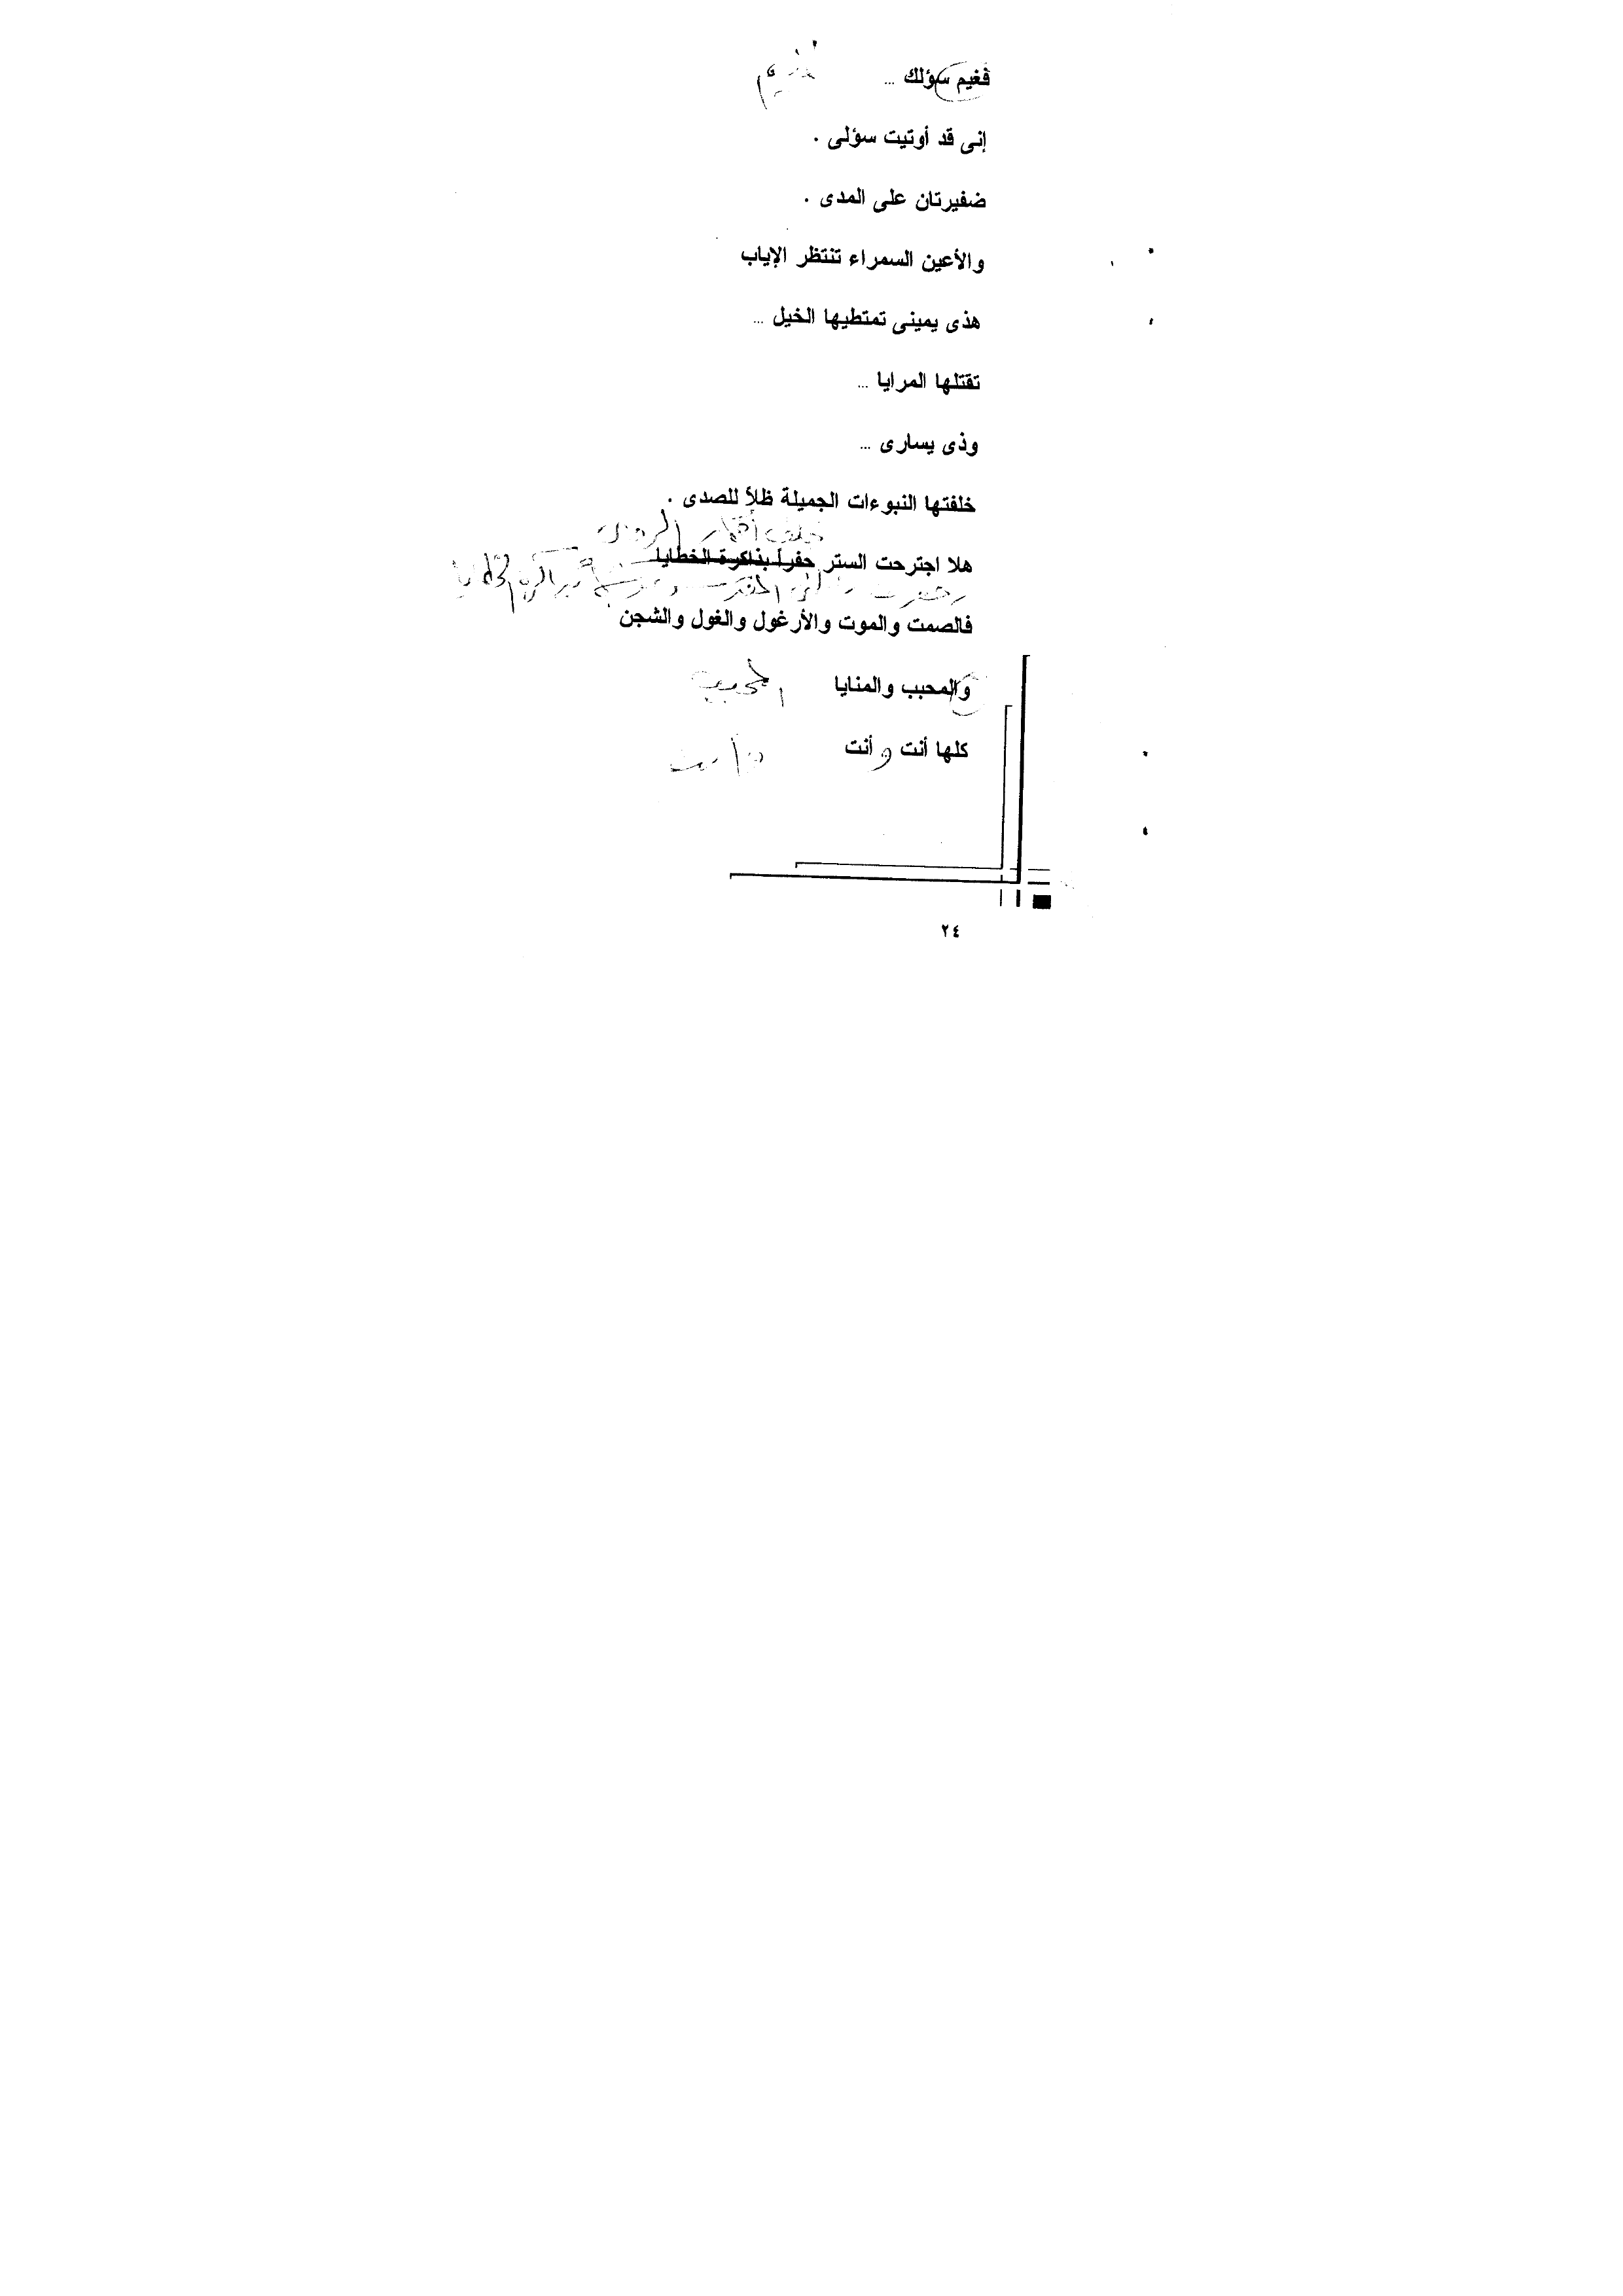 فغيم سؤلك ...
إنى قد أوتيت سؤلى .
ضفيرتان على المدى .
والأعين السمراء تنتظر الإياب
هذى يمينى تمتطيها الخيل ...
تقتلها المرايا ...
وذى يسارى ...
خلفتها النبوءات الجميلة ظلاً للصدى .
خلف أقمار
هلا اجترحت الستر حفراً بذاكرة الخطايا
فالصمت والموت والأرغول والغول والشجن
والمحبب والمنايا المحبب
كلها أنت وأنت
٢٤